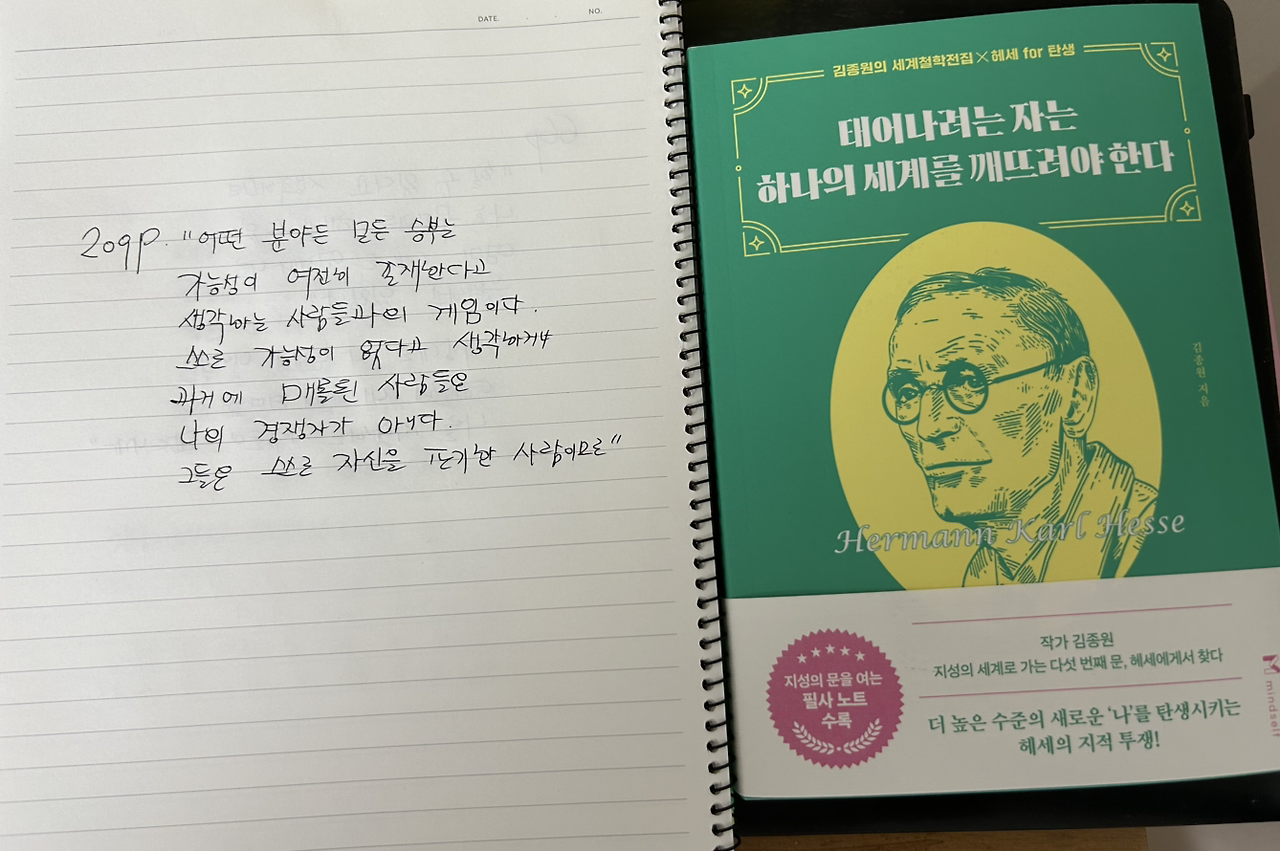 DATE. . .
NO.
209p. "어떤 분야든 모든 승부는
가능성이 여전히 존재한다고
생각하는 사람들과의 게임이다.
스스로 가능성이 없다고 생각하거나
과거에 매몰된 사람들은
나의 경쟁자가 아니다.
그들은 스스로 자신을 포기한 사람이므로"
김종원의 세계철학전집×헤세 for 탄생
태어나려는 자는
하나의 세계를 깨뜨려야 한다
김종원 지음
Hermann Karl Hesse
작가 김종원
지성의 세계로 가는 다섯 번째 문, 헤세에게서 찾다
더 높은 수준의 새로운 '나'를 탄생시키는
헤세의 지적 투쟁!
지성의 문을 여는
필사 노트
수록
mindself